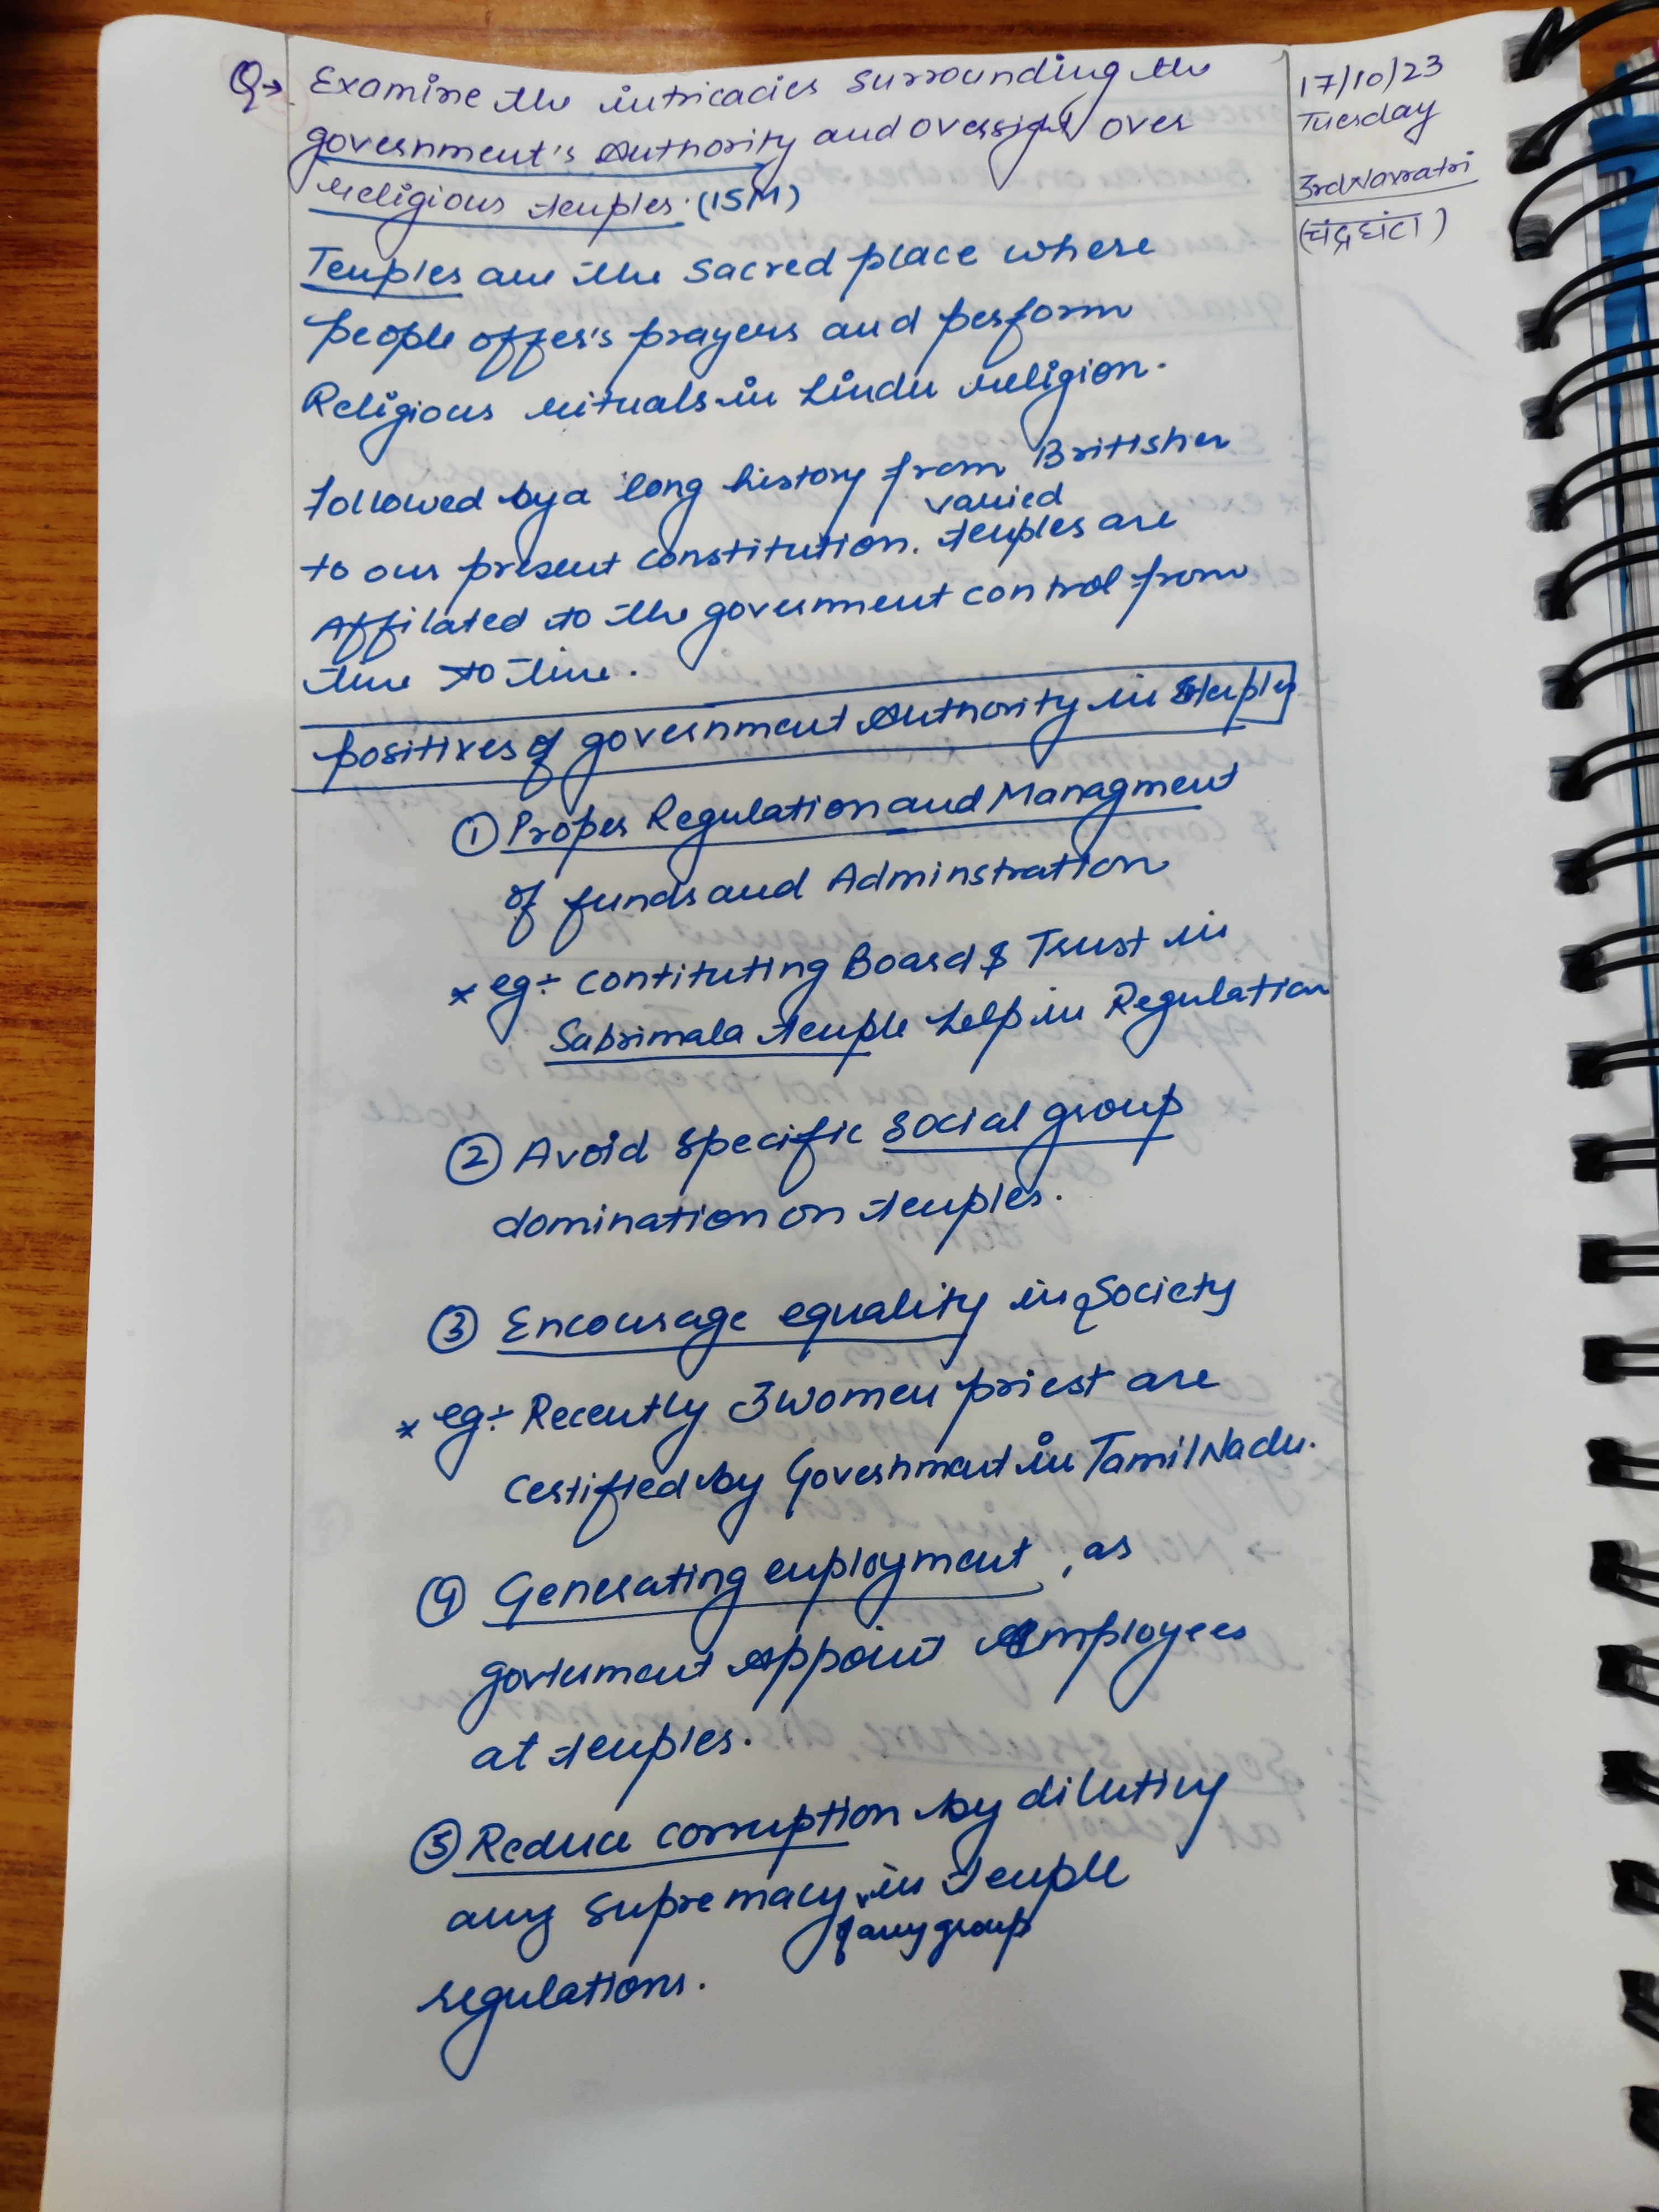 Q→ Examine the intricacies surrounding the
government's Authority and oversight over
religious temples. (15M)
17/10/23
Tuesday
3rd Navratri
(चंद्रघंटा)
Temples are the sacred place where
people offers prayers and perform
Religious rituals in hindu religion.
followed by a long history from Britisher
to our present constitution. varied temples are
Affilated to the government control from
time to time.
positives of government Authority in temples
① Proper Regulation and Managment
of funds and Adminstration
* eg:- Contituting Board & Trust in
Sabrimala temple help in Regulation
② Avoid specific social group
domination on temples.
③ Encourage equality in Society
* eg:- Recently 3 women priest are
certified by Government in Tamil Nadu.
④ Generating employment, as
government Appoint Employees
at temples.
⑤ Reduce corruption by diluting
any supremacy of any group in temple
regulations.